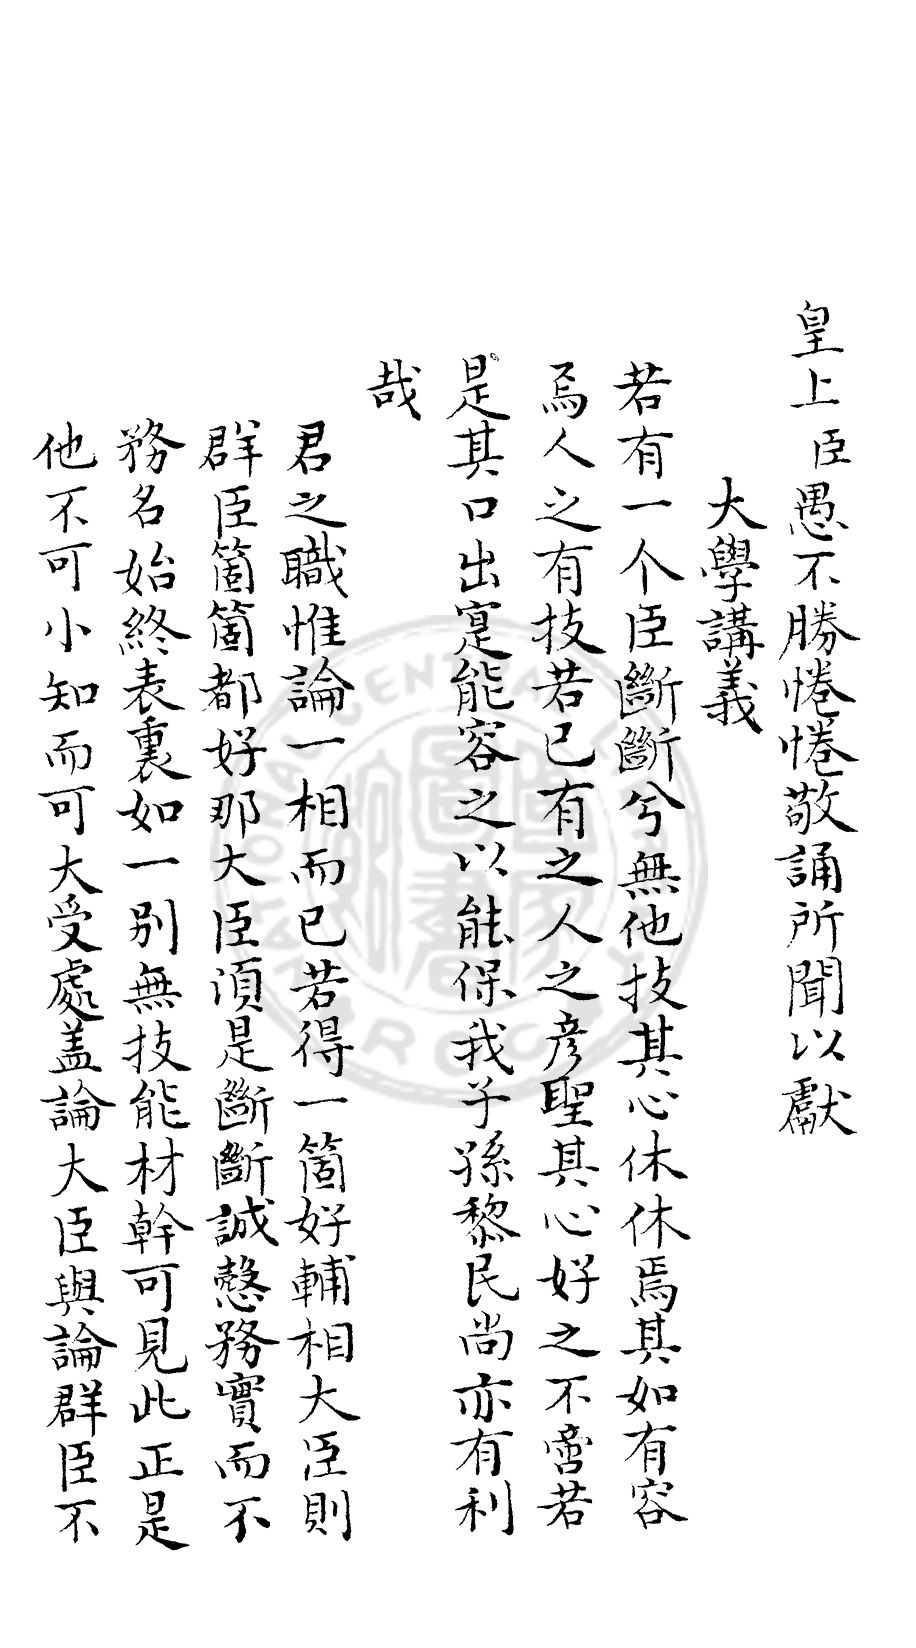 皇上臣愚不勝惓惓敬誦所聞以獻
大學講義
若有一个臣斷斷兮無他技其心休休焉其如有容
焉人之有技若已有之人之彥聖其心好之不啻若
是其口出寔能容之以能保我子孫黎民尚亦有利
哉
君之職惟論一相而已若得一箇好輔相大臣則
群臣箇箇都好那大臣湏是斷斷誠慤務實而不
務名始終表裏如一別無技能材幹可見此正是
他不可小知而可大受處盖論大臣與論群臣不